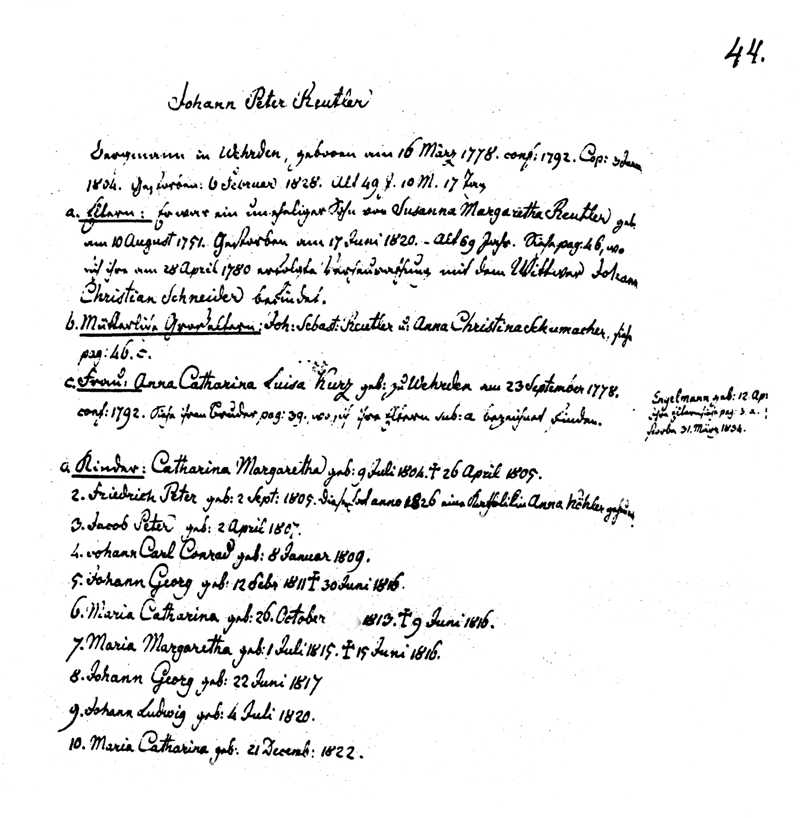 44.
Johann Peter Reutler
Bergmann in Wehrden, geboren am 16 März 1778. conf: 1792. Cop: 3 Jan
1804. Gestorben: 6 Februar 1828. Alt 49 J. 10 M. 17 Tag
a. Eltern: Er war ein unehelicher Sohn von Susanna Margaretha Reutler geb.
am 10 August 1751. Gestorben am 17 Juni 1820. - Alt 69 Jahr. Siehe pag: 46, wo
sich ihre am 28 April 1780 erfolgte Verheurathung mit dem Wittwer Johann
Christian Schneider befindet.
b. Mütterliche Grosseltern: Joh: Sebast: Reutler u: Anna Christina Schumacher, siehe
pag: 46. c.
c. Frau: Anna Catharina Luisa Kurz geb: zu Wehrden am 23 September 1778.
conf: 1792. Siehe ihren Bruder pag: 39. wo sich ihre Eltern sub: a bezeichnet finden.
Engelmann geb: 12 Ap:
ihre Eltern siehe pag: 3. a.
storben 31. März 1834.
Kinder: Catharina Margaretha geb: 9 Juli 1804. † 26 April 1805.
2. Friedrich Peter geb: 2 Sept: 1805. Dieser hat anno 1826 eine Katholikin Anna Köhler
3. Jacob Peter geb: 2 April 1807.
4. Johann Carl Conrad geb: 8 Januar 1809.
5. Johann Georg geb: 12 Febr 1811 † 30 Juni 1816.
6. Maria Catharina geb: 26. October 1813. † 9 Juni 1816.
7. Maria Margaretha geb: 1 Juli 1815. † 15 Juni 1816.
8. Johann Georg geb: 22 Juni 1817
9. Johann Ludwig geb: 4 Juli 1820.
10. Maria Catharina geb: 21 Decemb: 1822.